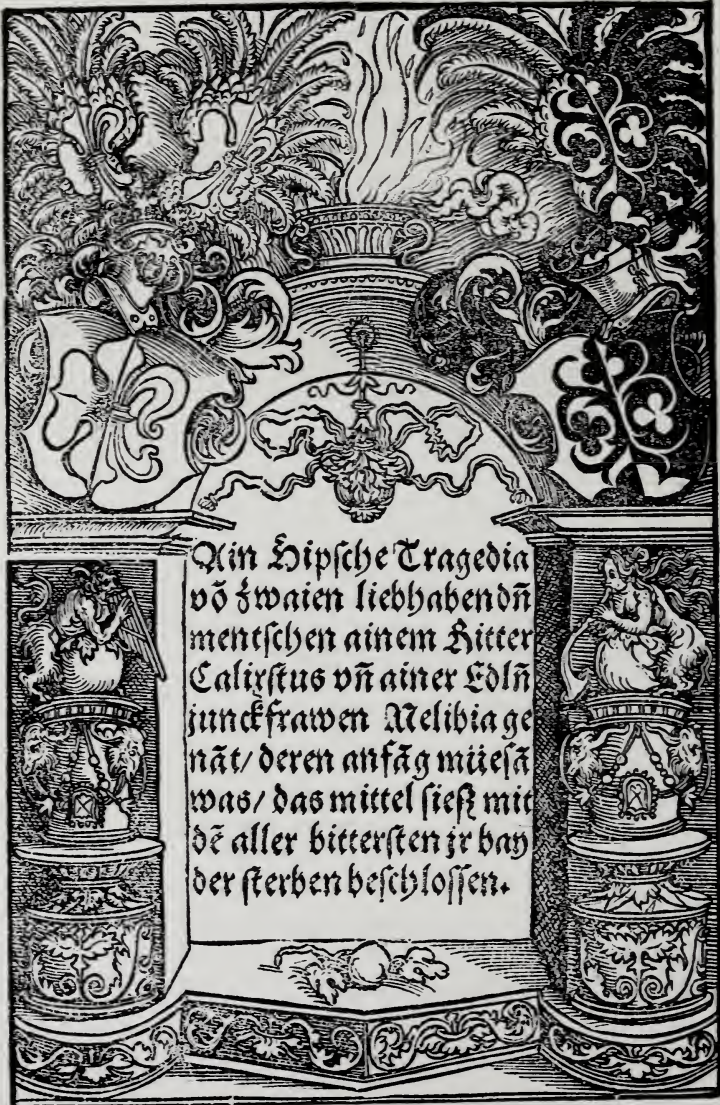 Ain Hipsche Tragedia
vō zwaien liebhabendn̄
mentschen ainem Ritter
Calixstus vn̄ ainer Edln̄
junckfrawen Melibia ge
nāt/ deren anfāg müesā
was/ das mittel sieß mit
dē aller bittersten jr bay
der sterben beschlossen.